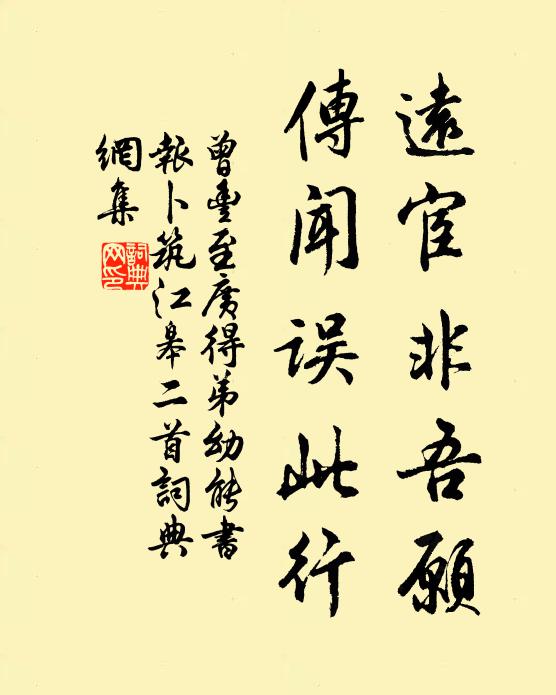 遠宦非吾願
傳聞誤此行
曾豊至廣得弟幼能書
報卜筑江皋二首詞典
網集
詞典網印